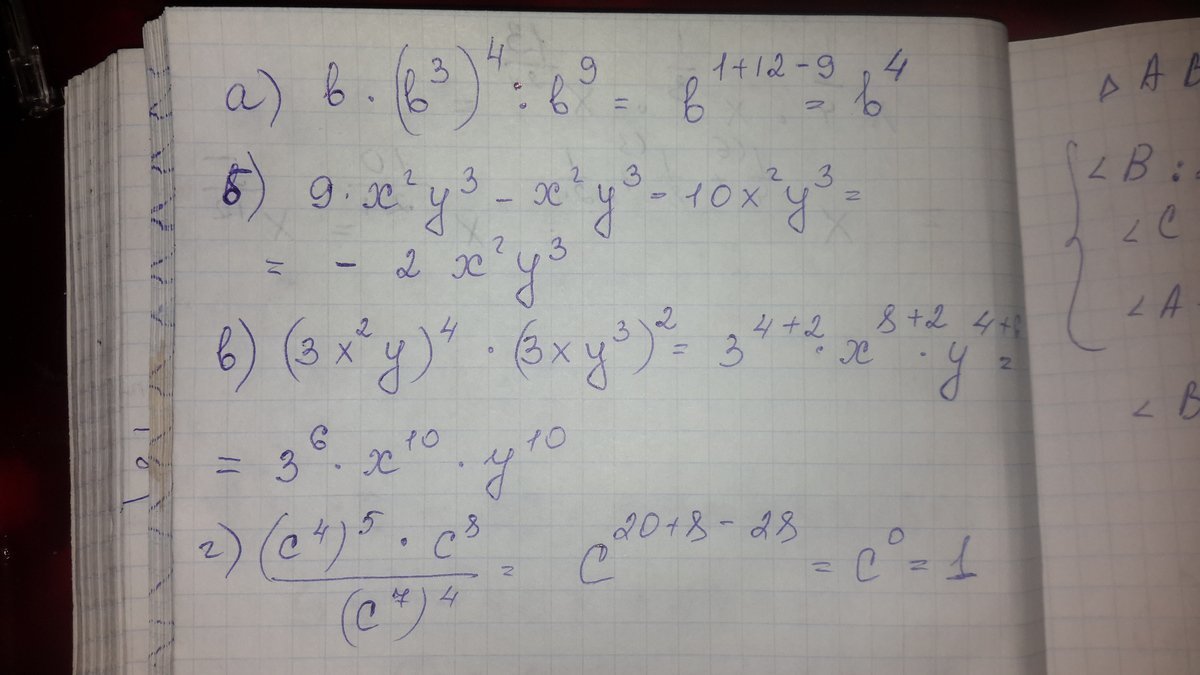 а) b · (b³)⁴ : b⁹ = b¹⁺¹²⁻⁹ = b⁴
б) 9 · x²y³ - x²y³ - 10x²y³ =
= - 2 x²y³
в) (3x²y)⁴ · (3xy³)² = 3⁴⁺² · x⁸⁺² · y⁴⁺⁶ =
= 3⁶ · x¹⁰ · y¹⁰
г) (c⁴)⁵ · c⁸ / (c⁷)⁴ = c²⁰⁺⁸⁻²⁸ = c⁰ = 1
△ A B
∠B :
∠C
∠A
∠B